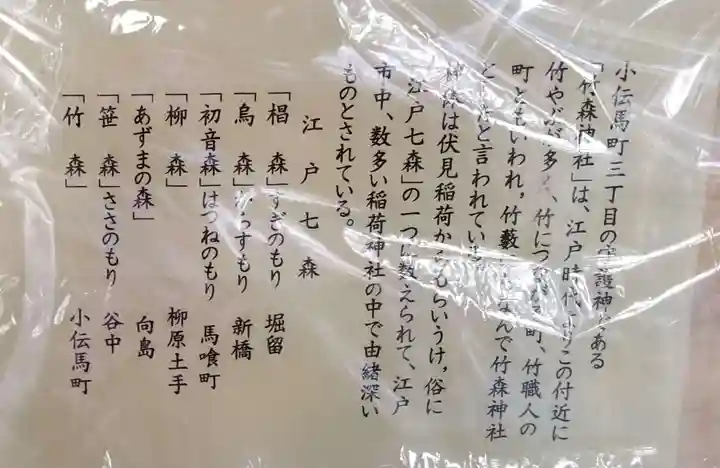 小伝馬町三丁目の守護神である
「竹森神社」は、江戸時代よりこの付近に
竹やぶが多く、竹につながる町、竹職人の
町ともいわれ、竹藪にちなんで竹森神社
としたと言われています
神体は伏見稲荷からもらいうけ、俗に
「江戸七森」の一つに数えられて、江戸
市中、数多い稲荷神社の中で由緒深い
ものとされている。
江戸七森
「椙森」すぎのもり 堀留
「烏森」からすもり 新橋
「初音森」はつねのもり 馬喰町
「柳森」 柳原土手
「あずまの森」 向島
「笹森」ささのもり 谷中
「竹森」 小伝馬町